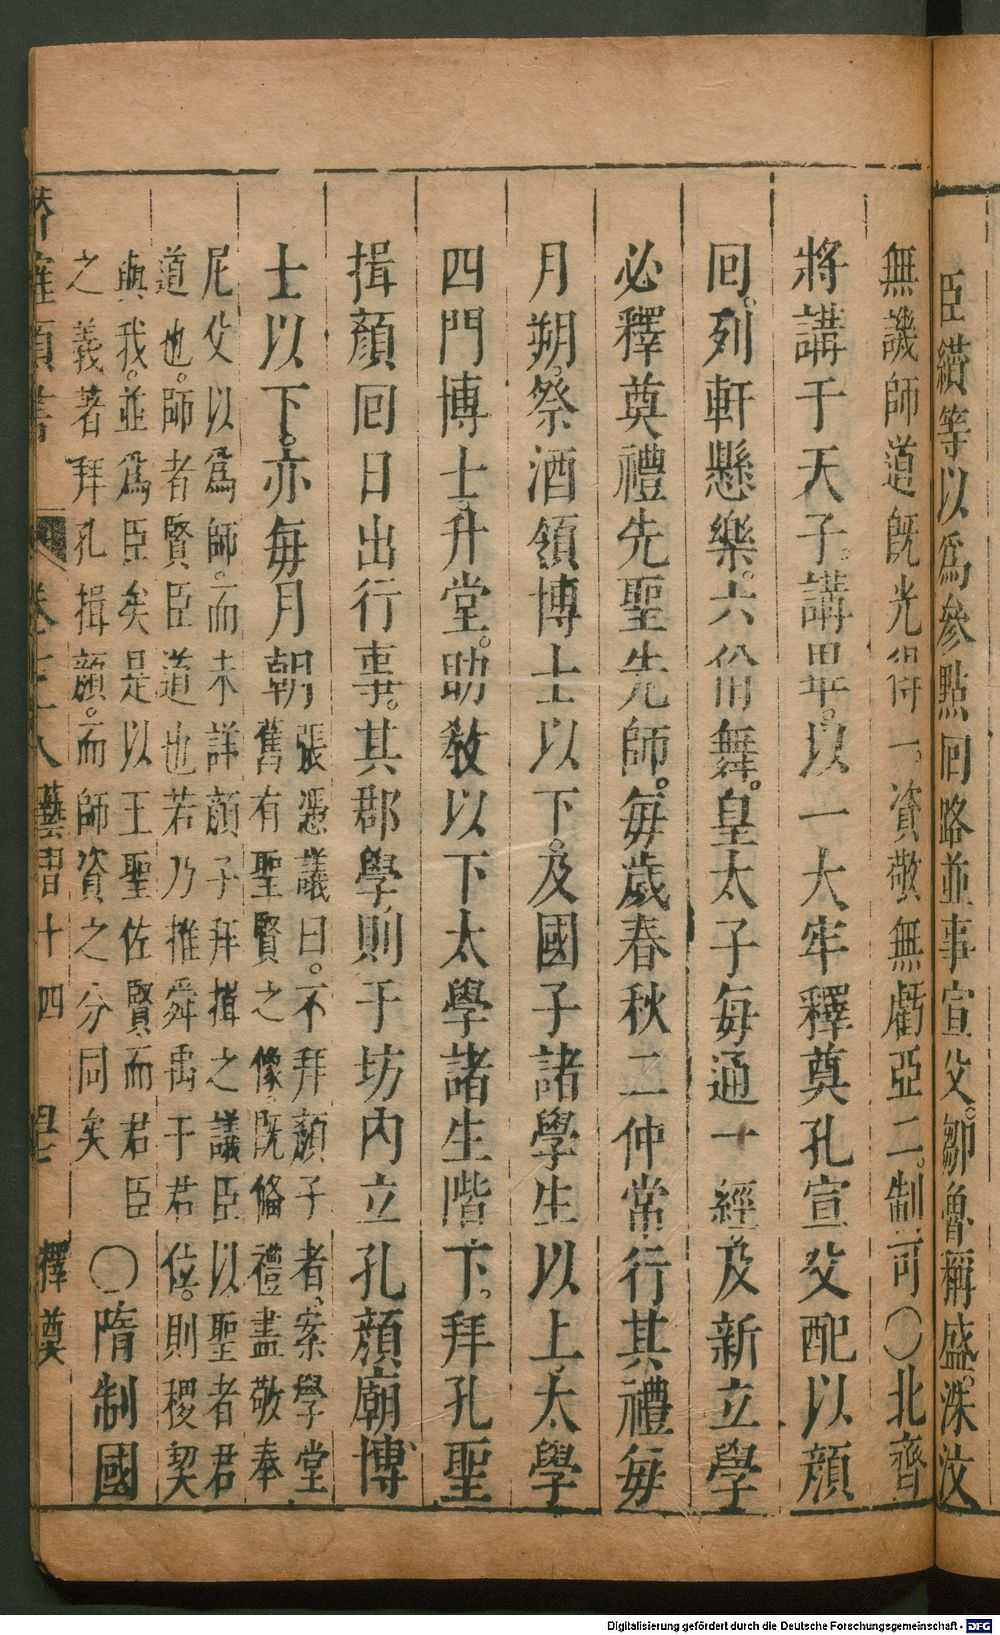 臣纘等以爲參點回路並事宣父。鄒魯稱盛。洙汶
無譏師道旣光得一。資敬無虧亞二。制可〇北齊
將講于天子。講畢。以一大牢釋奠孔宣父配以顏
回。列軒懸樂。六佾舞。皇太子每通一經及新立學
必釋奠禮先聖先師。每歲春秋二仲常行其禮每
月朔。祭酒領博士以下。及國子諸學生以上太學
四門博士升堂。助敎以下太學諸生階下。拜孔聖
揖顏回日出行事。其郡學則于坊内立孔顏廟博
士以下。亦每月朝
張憑議曰。不拜顏子者、案學堂
舊有聖賢之像旣脩禮盡敬奉
尼父以爲師。而未詳顏子拜揖之議臣以聖者君
道也。師者賢臣道也若乃推舜禹于君位。則稷契
與我。並爲臣矣是以王聖佐賢而君臣
之義著拜孔揖顏。而師資之分同矣
〇隋制國
卷 藝習十四 釋奠
Digitalisierung gefördert durch die Deutsche Forschungsgemeinschaft - DFG